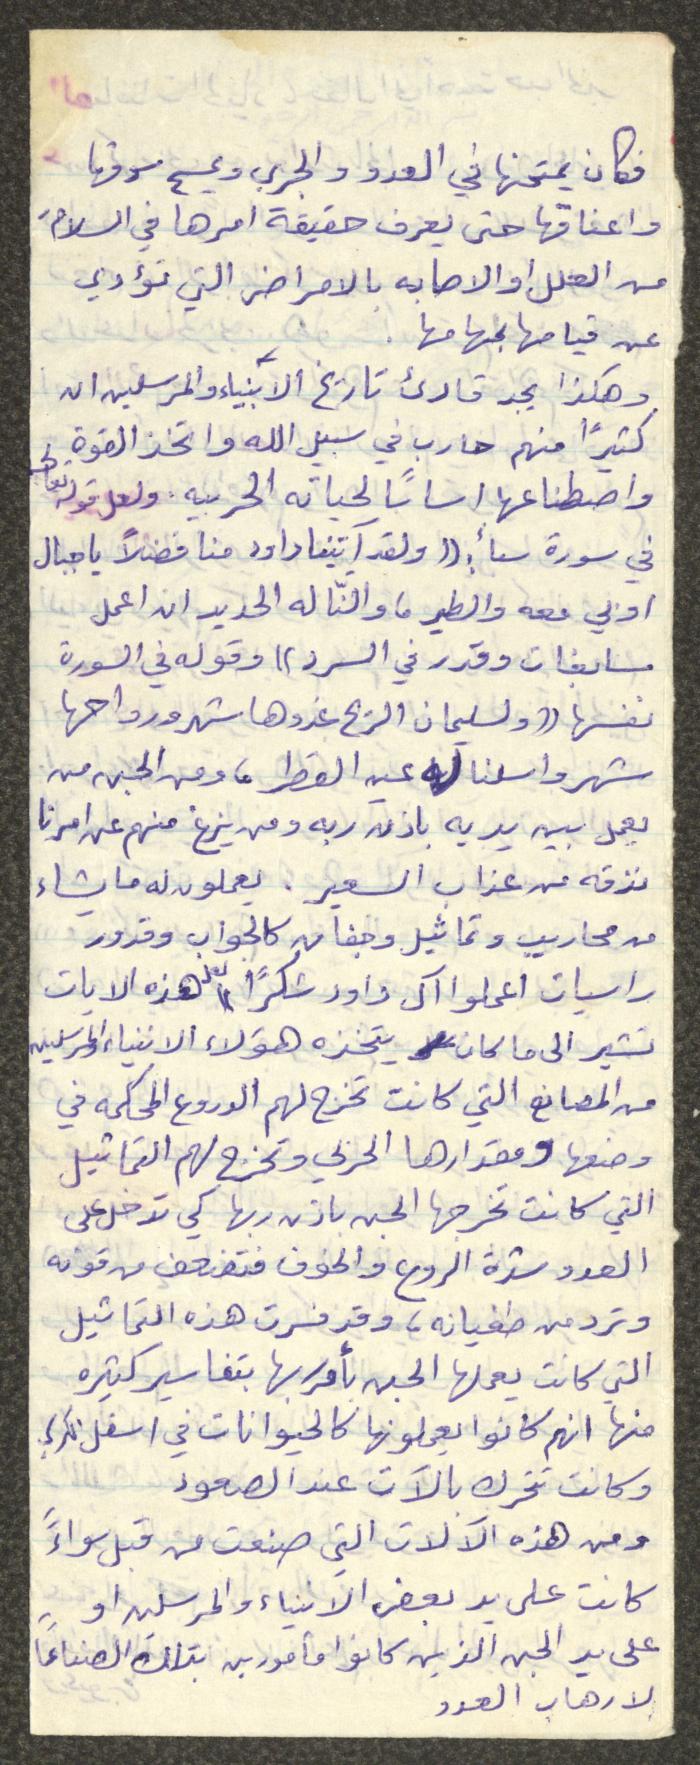 فكان يمتحنها في العدو والجري ويمسح سوقها
واعناقها حتى يعرف حقيقة امرها في السلامة
من العلل او الاصابه بالامراض التي تؤدي
عن قيامها بمهامها .
وهكذا يجد قارئ تاريخ الأنبياء والمرسلين ان
كثيرًا منهم حارب في سبيل الله واتخذ القوة
واصطناعها اساسًا لحياته الحربيه . ولعل قوله تعالى
في سورة سبأ: (( ولقد آتينا داود منا فضلاً يا جبال
اوبي معه والطير ، والنّا له الحديد ان اعمل
سابغات وقدر في السرد )) وقوله في السورة
نفسها (( ولسليمان الريح غدوها شهر ورواحها
شهر واسلنا له عين القطر ، ومن الجن من
يعمل بين يديه باذن ربه ومن يزغ منهم عن امرنا
نذقه من عذاب السعير . يعملون له ما يشاء
من محاريب وتماثيل وجفان كالجواب وقدور
راسيات اعملوا آل داود شكرًا )) لعل هذه الايات
تشير الى ما كان يتخذه هؤلاء الانبياء والمرسلين
من المصانع التي كانت تخرج لهم الدروع المحكمه في
وضعها ومقدارها الحربي وتخرج لهم التماثيل
التي كانت تخرجها الجن باذن ربها كي تدخل على
العدو شدة الروع والخوف فتضعف من قوته
وترد من طغيانه ، وقد فسرت هذه التماثيل
التي كانت يعملها الجن بأمر ربها بتفاسير كثيره
منها انهم كانوا يعملونها كالحيوانات في اسفل
وكانت تتحرك بالآت عند الصعود
ومن هذه الآلات التي صنعت من قبل سواءً
كانت على يد بعض الانبياء والمرسلين او
على يد الجن الذين كانوا مأمورين بتلك
لارهاب العدو